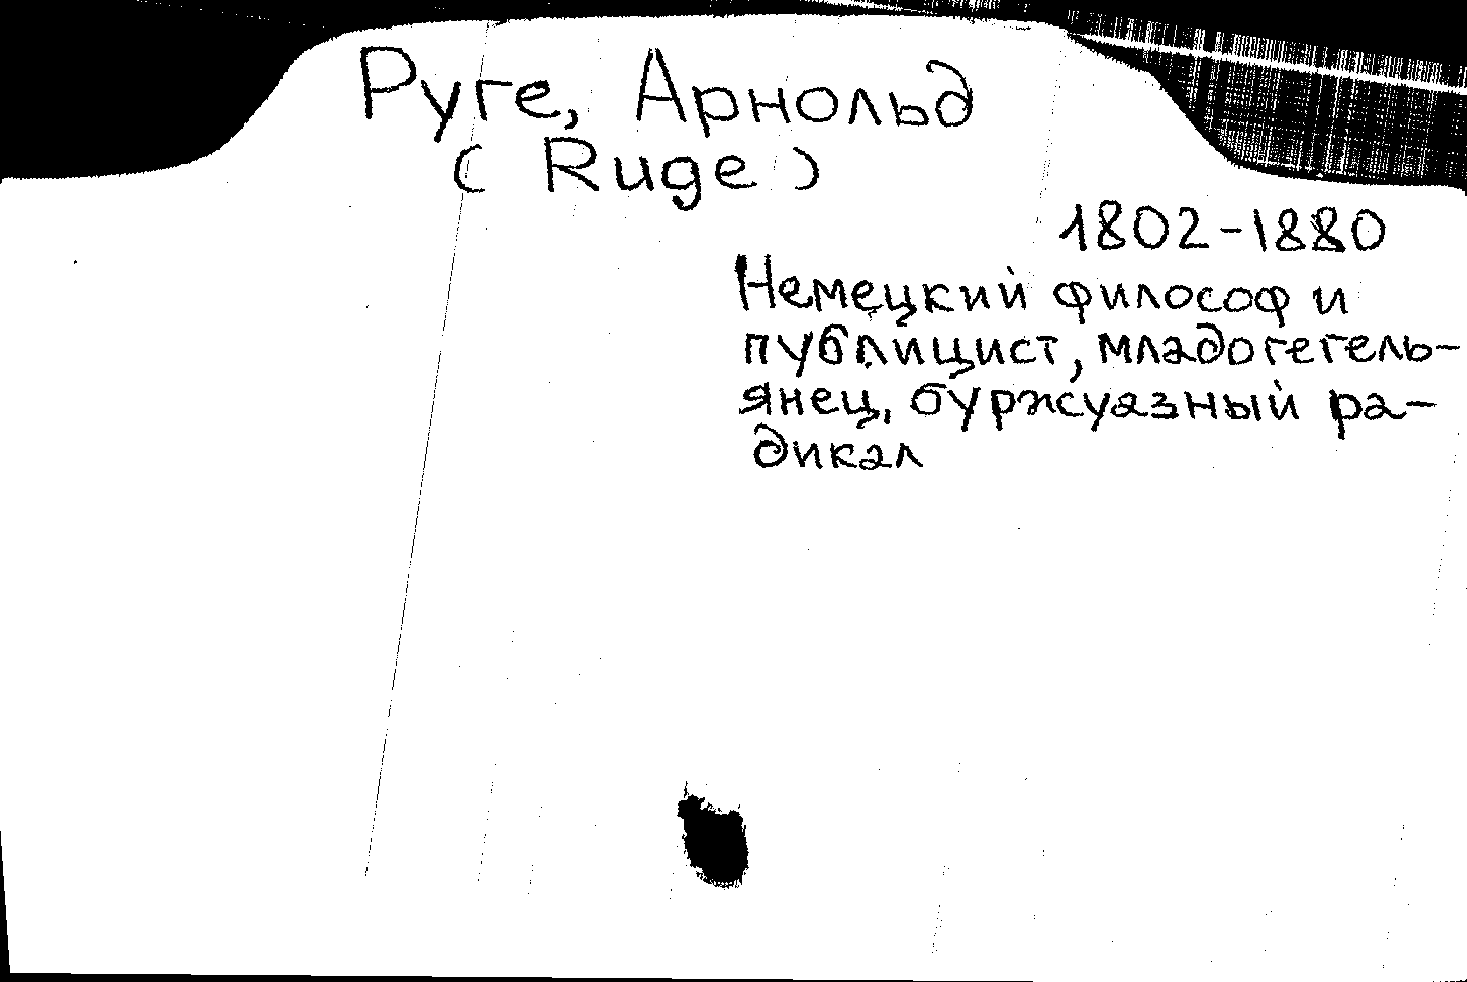 Руге, Арнольд
(Ruge)
1802-1880
Немецкий философ и
публицист, младогегель-
янец, буржуазный ра-
дикал